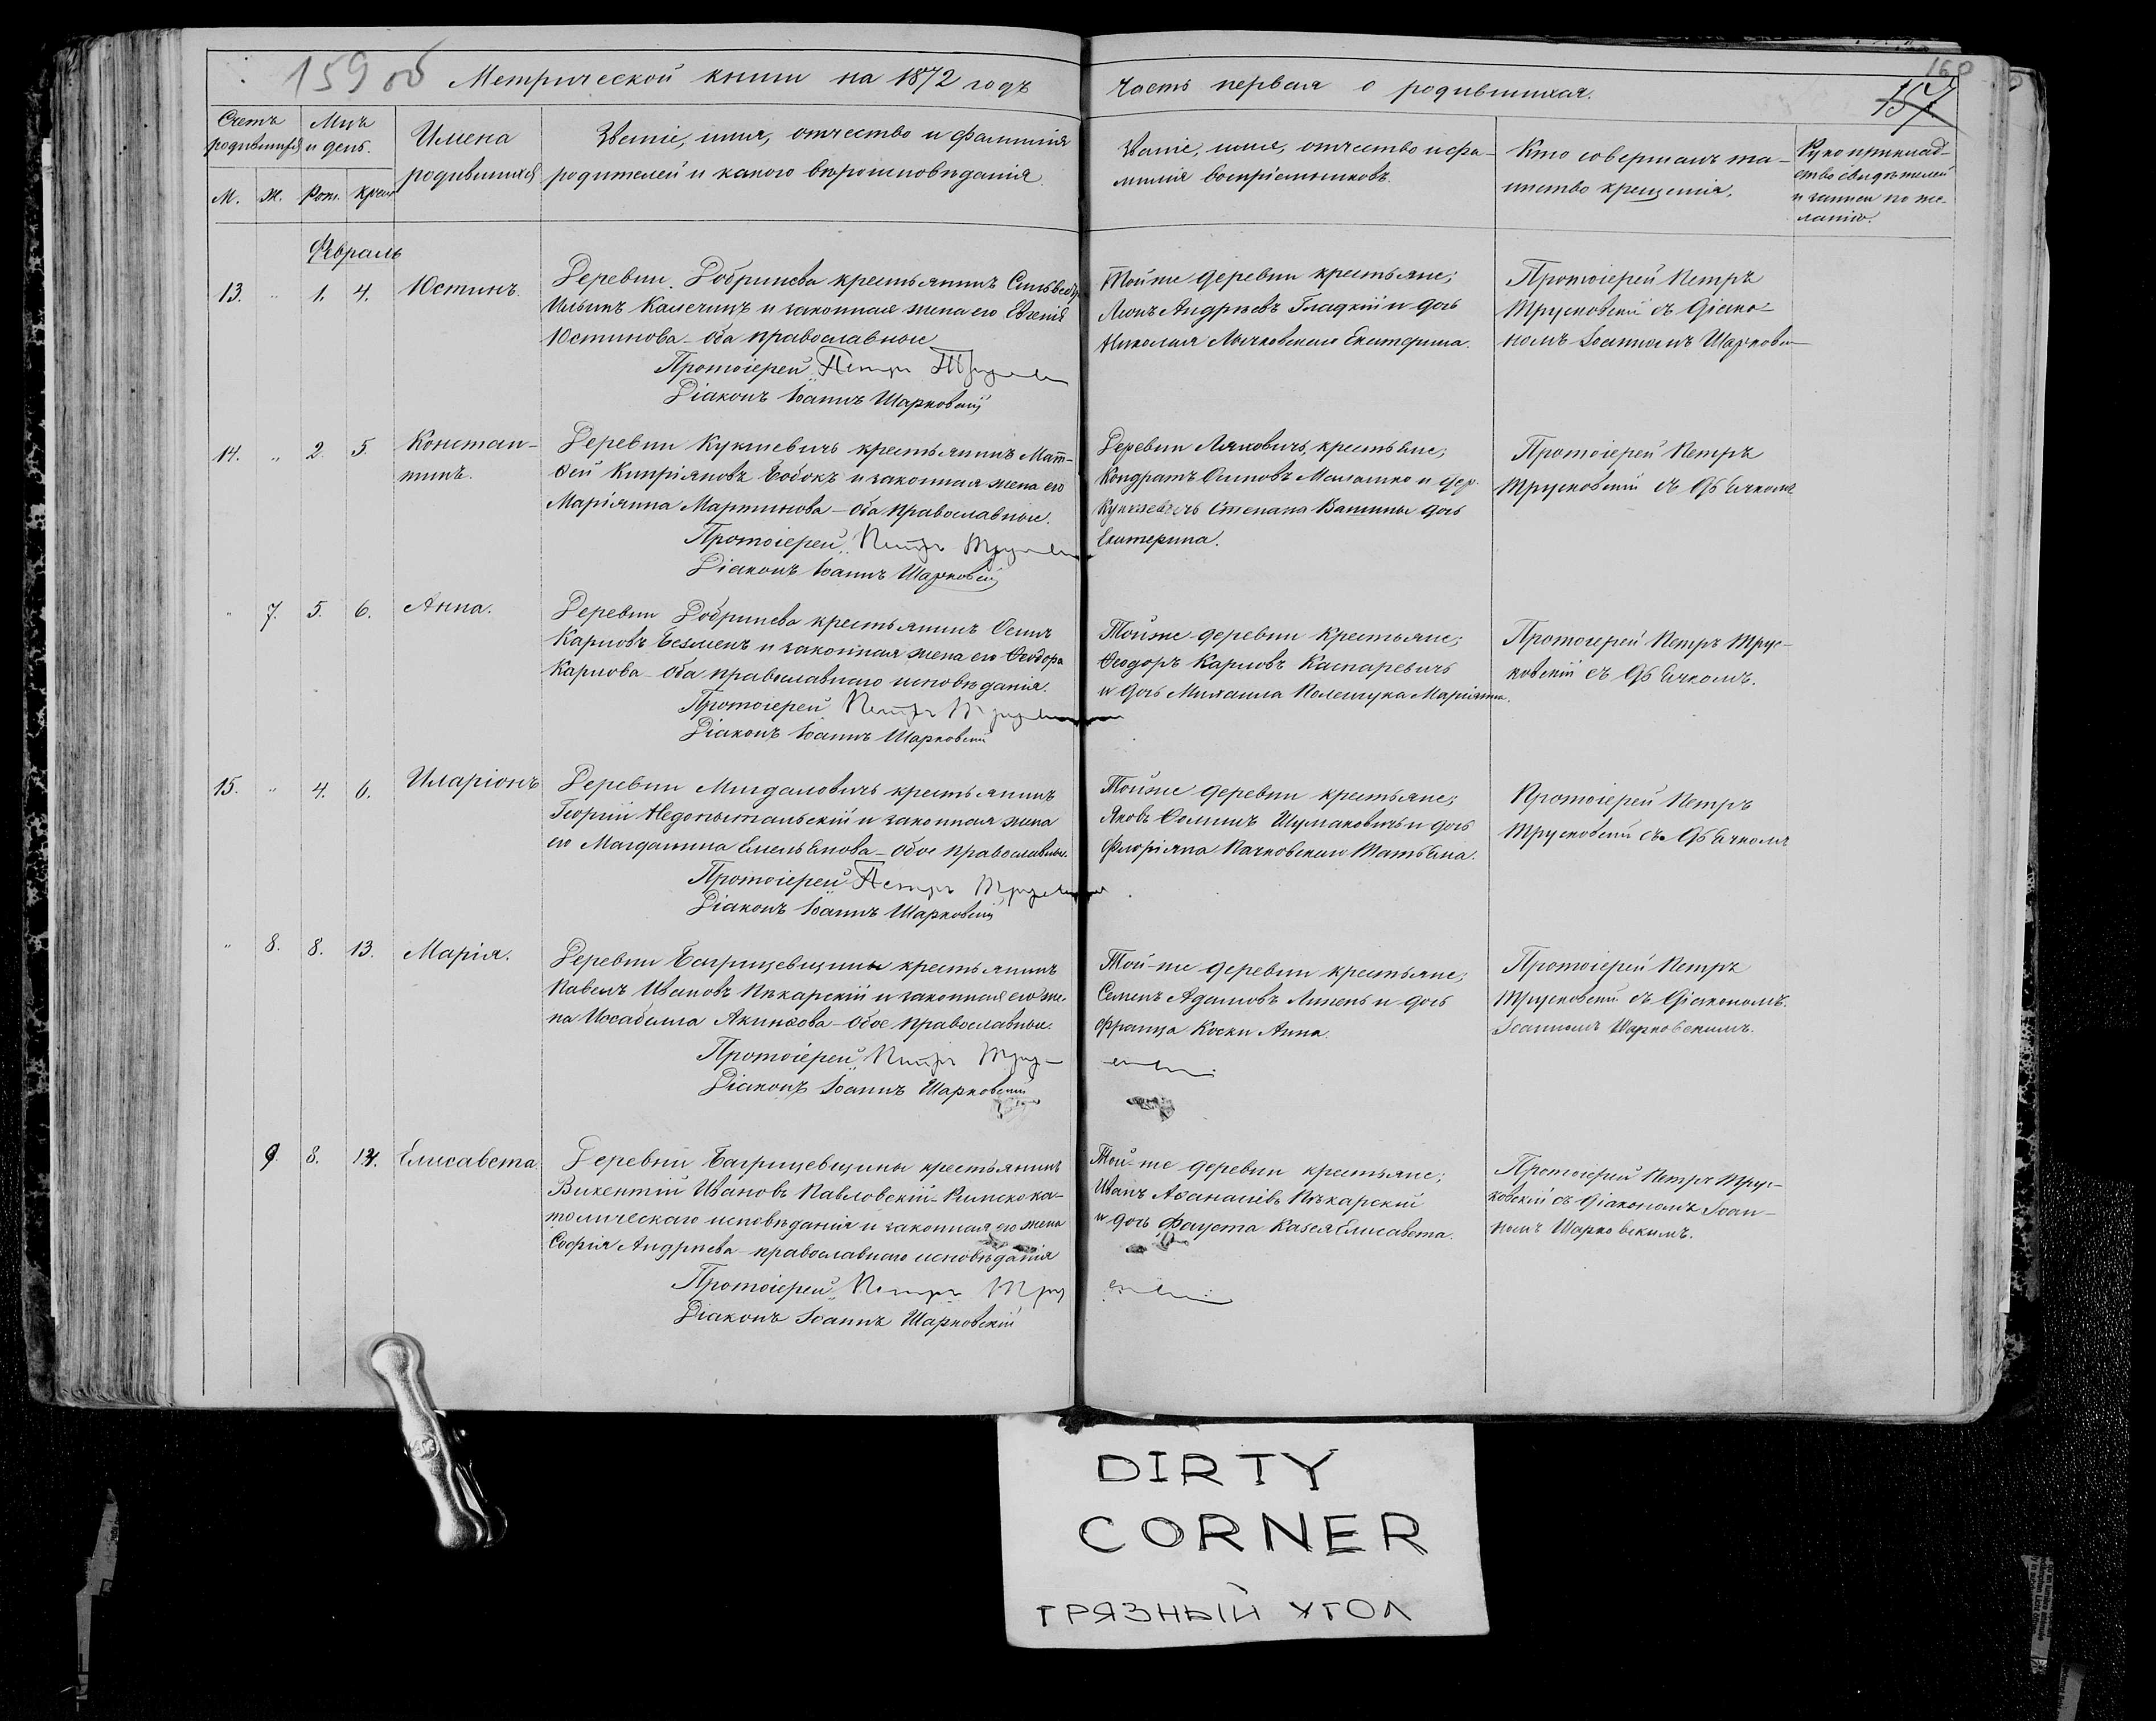 159 об Метрической книги на 1872 годъ
Часть первая о родившихся.
160
157
Счетъ родившихся
Мцъ и день.
Имена родившихся
Званіе, имя, отчество и фамилія
родителей и какого вѣроисповѣданія.
Званіе, имя, отчество и фа-
милія воспріемниковъ.
Кто совершалъ та-
инство крещенія.
Рукоприклад-
ство свидѣтелей
и записи по же-
ланію.
М. Ж. Рож. Крещ.
Февраль
13. " 1. 4. Юстинъ.
Деревни Добринева крестьянинъ Сильвестръ
Ильинъ Калечицъ и законная жена его Евгенія
Юстинова – оба православные
Протоіерей Петръ
Діаконъ Іоаннъ Шарковскій
Тойже деревни крестьяне;
Андреевъ Гладкій и дочь
Николая Лычковскаго Екатерина.
Протоіерей Петръ
Трусковскій съ Діако-
номъ Іоанномъ
14. " 2. 5. Констан-
тинъ.
Деревни Кукшевичъ крестьянинъ Мат-
ѳей Кипріяновъ Бобокъ и законная жена его
Маріянна Мартинова – оба православные.
Протоіерей Петръ
Діаконъ Іоаннъ Шарковскій
Деревни Ляховичъ, крестьяне;
Кондратъ Осиповъ Малашко и дер.
Кукшевичъ Степана Ванины дочь
Екатерина.
Протоіерей Петръ
Трусковскій съ
" 7. 5. 6. Анна.
Деревни Добринева крестьянинъ Осипъ
Карповъ Безменъ и законная жена его Ѳеодора
Карпова – оба православнаго исповѣданія.
Протоіерей Петръ
Діаконъ Іоаннъ Шарковскій
Тойже деревни крестьяне;
Ѳеодоръ Карповъ Каспаревичъ
и дочь Михаила Полешука Маріянна.
Протоіерей Петръ Трус-
ковскій съ
15. " 4. 6. Иларіонъ
Деревни Мигдаловичъ крестьянинъ
Георгій и законная жена
его Магдалина Емельянова – обое православные.
Протоіерей Петръ
Діаконъ Іоаннъ Шарковскій
Тойже деревни крестьяне;
Яковъ Ѳоминъ Шумаковичъ и дочь
Флоріяна Пачковскаго Татьяна.
Протоіерей Петръ
Трусковскій съ
" 8. 8. 13. Марія.
Деревни Багрицевщины крестьянинъ
Павелъ Ивановъ Пѣкарскій и законная его же-
на Иосабелла Акинѳова – обое православные.
Протоіерей Петръ
Діаконъ Іоаннъ Шарковскій
Той-же деревни крестьяне;
Семенъ Адамовъ и дочь
Франца Коски Анна.
Протоіерей Петръ
Трусковскій съ Діакономъ
Іоанномъ Шарковскимъ.
9. 8. 14. Елисавета
Деревни Багрицевщины крестьянинъ
Викентій Ивановъ Павловскій – Римско ка-
толическаго исповѣданія и законная его жена
Софія Андреева – православнаго исповѣданія
Протоіерей Петръ
Діаконъ Іоаннъ Шарковскій
Той-же деревни крестьяне;
Иванъ Аѳанасіевъ Пѣкарскій
и дочь Фауста Казея Елисавета.
Протоіерей Петръ Трус-
ковскій съ Діакономъ Іоан-
номъ Шарковскимъ.
DIRTY
CORNER
ГРЯЗНЫЙ УГОЛ